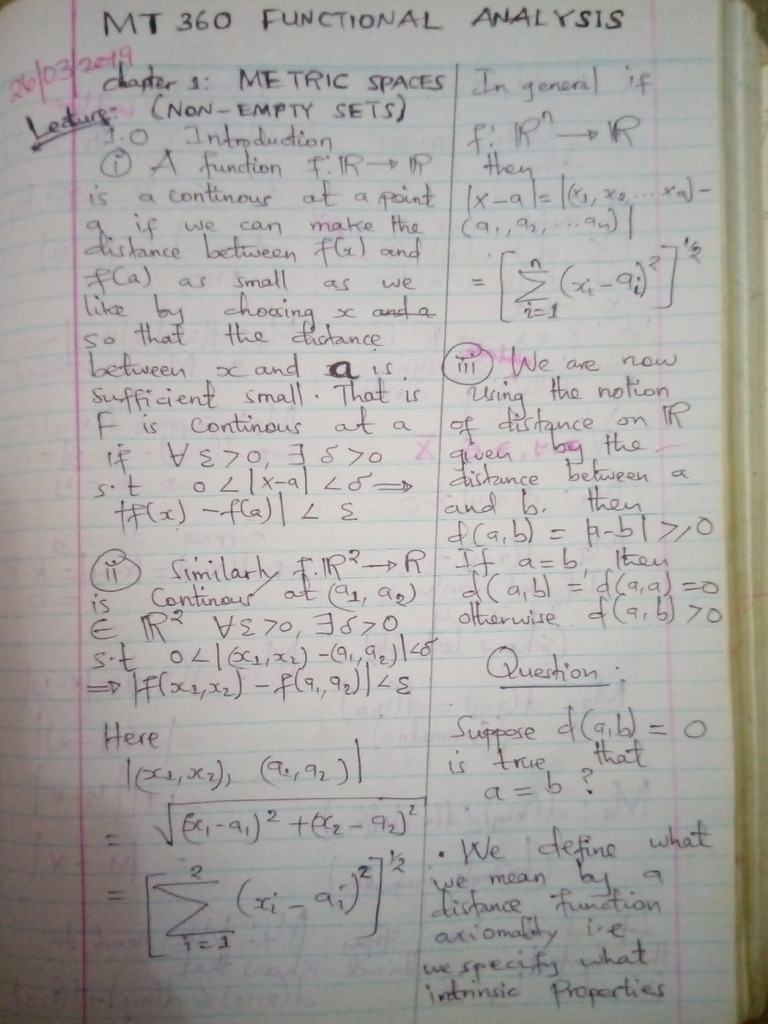 MT 360 FUNCTIONAL ANALYSIS
26/03/2019
Lecture:
chapter 1: METRIC SPACES
(NON-EMPTY SETS)
1.0 Introduction
(i) A function f: ℝ → ℝ
is a continous at a point
a if we can make the
distance between f(x) and
f(a) as small as we
like by choosing x and a
so that the distance
between x and a is
sufficient small. That is
F is continous at a
if ∀ ε>0, ∃ δ>0
s.t 0<|x-a|<δ ⟹
|f(x) - f(a)| < ε
(ii) Similarly f: ℝ² → ℝ
is continous at (a₁, a₂)
∈ ℝ² ∀ε>0, ∃δ>0
s.t 0<|(x₁,x₂) - (a₁,a₂)|<δ
⟹ |f(x₁,x₂) - f(a₁,a₂)|<ε
Here
|(x₁,x₂), (a₁,a₂)|
= √(x₁-a₁)² + (x₂-a₂)²
= [∑_{i=1}^{2} (xᵢ - aᵢ)²]^{1/2}
In general if
f: ℝⁿ → ℝ
then
|x-a| = |(x₁, x₂, ... xₙ) -
(a₁, a₂, ... aₙ)|
= [∑_{i=1}^{n} (xᵢ - aᵢ)²]^{1/2}
(iii) We are now
using the notion
of distance on ℝ
given by the
distance between a
and b. then
d(a,b) = |a-b| ≥ 0
If a=b, then
d(a,b) = d(a,a) = 0
otherwise d(a,b) > 0
Question:
Suppose d(a,b) = 0
is true that
a = b ?
• We define what
we mean by a
distance function
axiomality i.e
we specify what
intrinsic properties